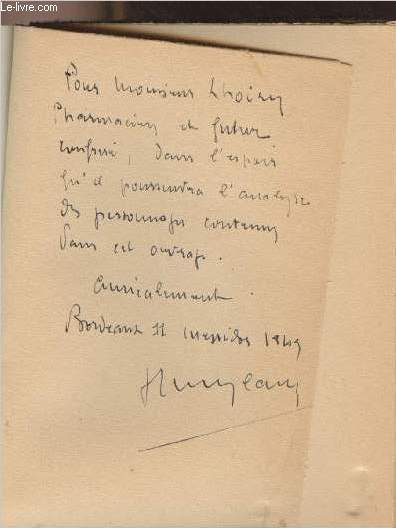 Le-livre.com
Pour Monsieur
Pharmacien et futur
confrère, dans l'espoir
qu'il poursuivra l'analyse
des personnages contenus
dans cet ouvrage.
Amicalement.
Bordeaux 11 1949